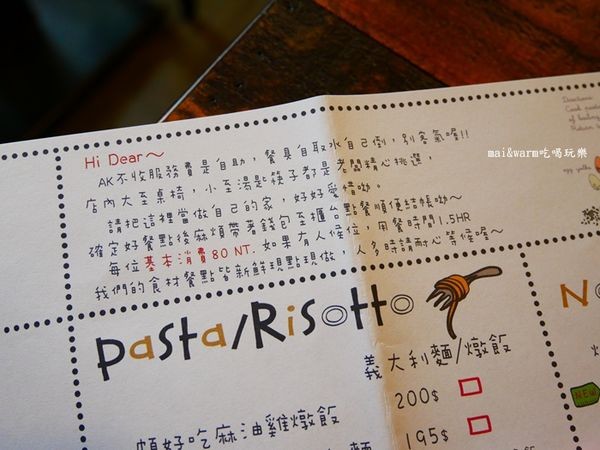 Hi Dear～
AK不收服務費是自助，餐具自取水自己倒，別客氣喔!!
店內大至桌椅，小至湯匙筷子都是老闆精心挑選，
請把這裡當做自己的家，好好愛惜呦。
確定好餐點後麻煩帶著錢包至櫃台點餐順便結帳呦～
每位基本消費80 NT. 如果有人候位，用餐時間1.5HR
我們的食材餐點皆新鮮現點現做，人多時請耐心等候喔～
mai&warm吃喝玩樂
Directions:
egg yolks
Pasta/Risotto
義大利麵/燉飯
200$
頗好吃麻油雞燉飯
195$
麵
No
NEW